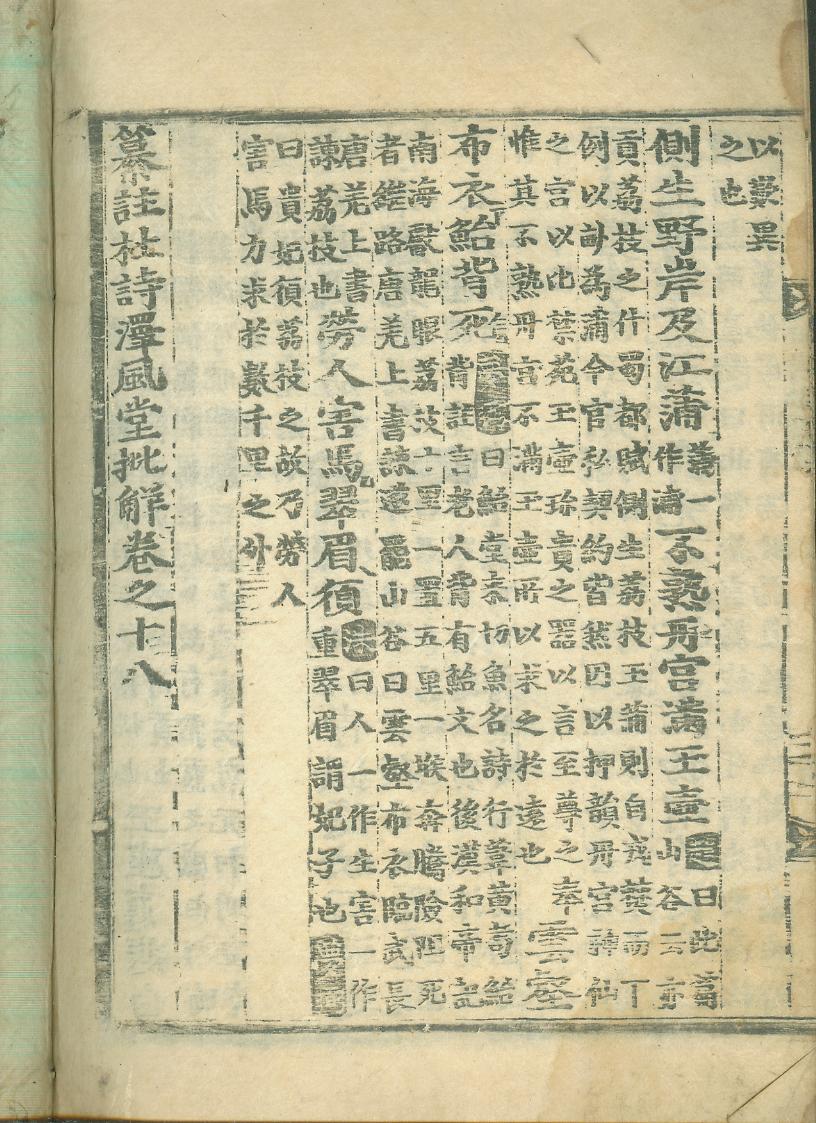 以歎異
之也
側生野岸及江蒲蒲一作浦不熟丹宮滿玉壺曰此篇
山谷云亦
貢荔枝之什蜀都賦側生荔枝玉蒲則自戎僰而下
例以畝為蒲今官私契約皆然因以押韻丹宮神仙
之言以比葉苑玉壺珍貴之器以言至尊之奉
惟其不熟丹宮不滿玉壺所以求之於遠也雲壑
布衣鮐背死曰鮐堂來切魚名詩行葦黃耇鮐
背註言老人背有鮐文也後漢和帝記
南海獻龍眼荔枝十里一置五里一堠奔騰險阻死
者繼路唐羌上書諫遠壑山谷曰雲壑布衣臨武長
唐羌上書
諫荔枝也勞人害馬翠眉須曰人一作生害一作
重翠眉謂妃子也
曰貴妃須荔枝之故乃勞人
害馬力求於數千里之外
纂註杜詩澤風堂批解卷之十八